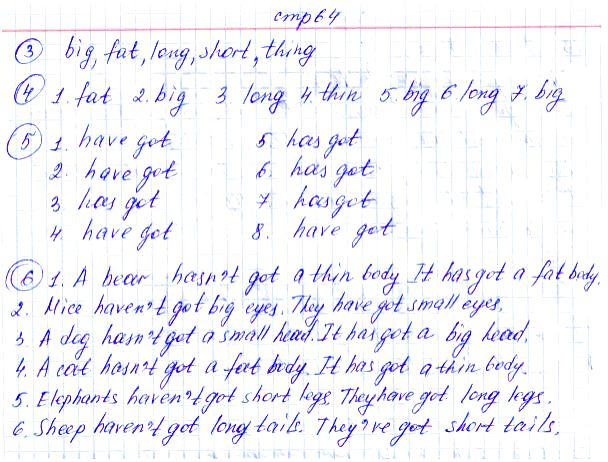 стр 64
3 big, fat, long, short, thing
4 1. fat 2. big 3 long 4. thin 5. big 6 long 7. big
5 1. have got 5. has got
2. have got 6. has got
3 has got 7 has got
4. have got 8. have got
6 1. A bear hasn't got a thin body It has got a fat body.
2. Mice haven't got big eyes. They have got small eyes.
3 A dog hasn't got a small head. It has got a big head.
4. A cat hasn't got a fat body. It has got a thin body.
5. Elephants haven't got short legs They have got long legs.
6. Sheep haven't got long tails. They've got short tails.